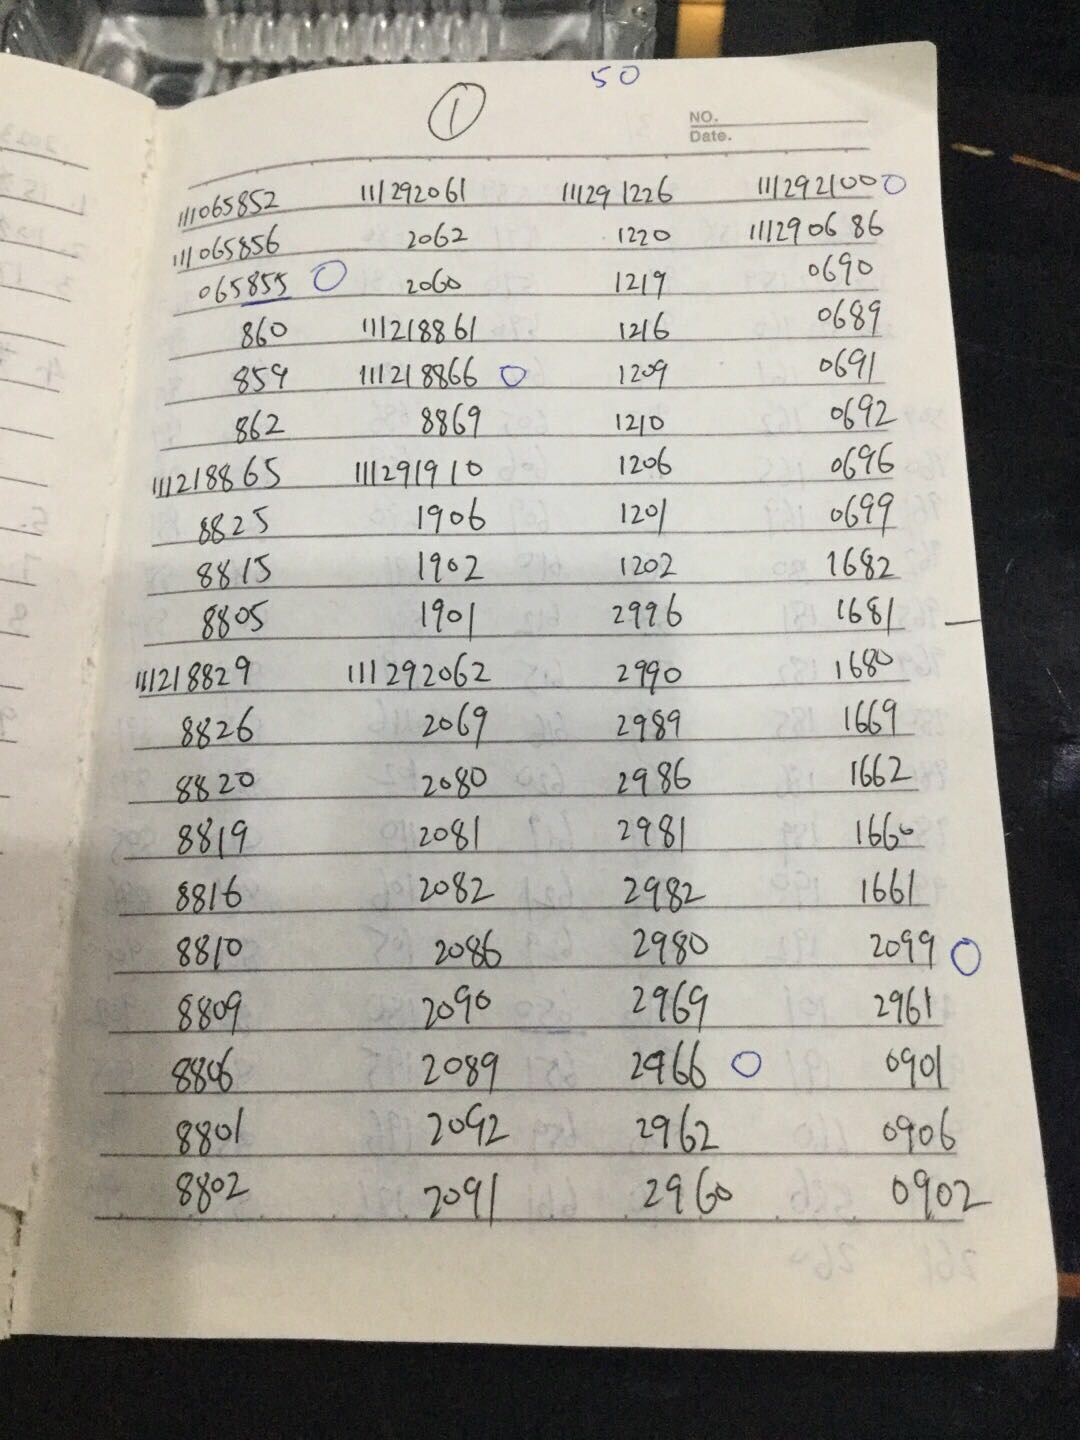 50
①
NO.
Date.
111065852 111292061 111291226 111292100
111065856 2062 1220 111290686
065855 2060 1219 0690
860 111218861 1216 0689
859 111218866 1209 0691
862 8869 1210 0692
111218865 111291910 1206 0696
8825 1906 1201 0699
8815 1902 1202 1682
8805 1901 2996 1681
111218829 111292062 2990 1680
8826 2069 2989 1669
8820 2080 2986 1662
8819 2081 2981 1660
8816 2082 2982 1661
8810 2086 2980 2099
8809 2090 2969 2961
8806 2089 2966 0901
8801 2092 2962 0906
8802 2091 2960 0902